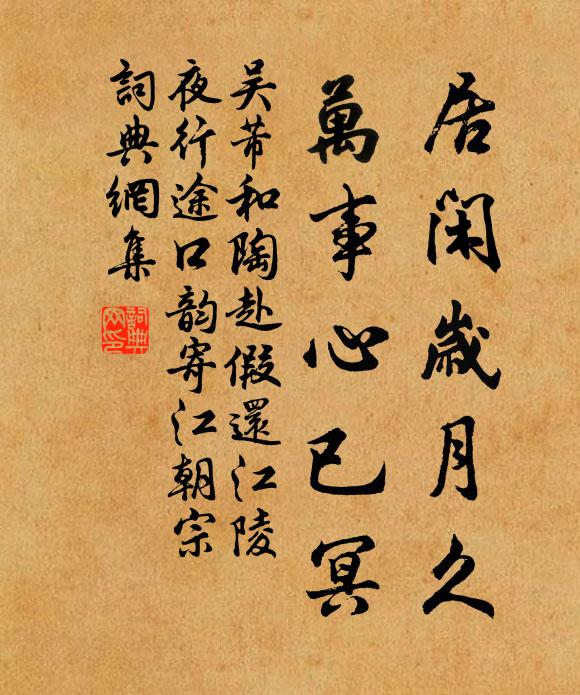 居閑歲月久
萬事心已冥
吴芾和陶赴假還江陵
夜行途口韵寄江朝宗
詞典網集
詞典
网印